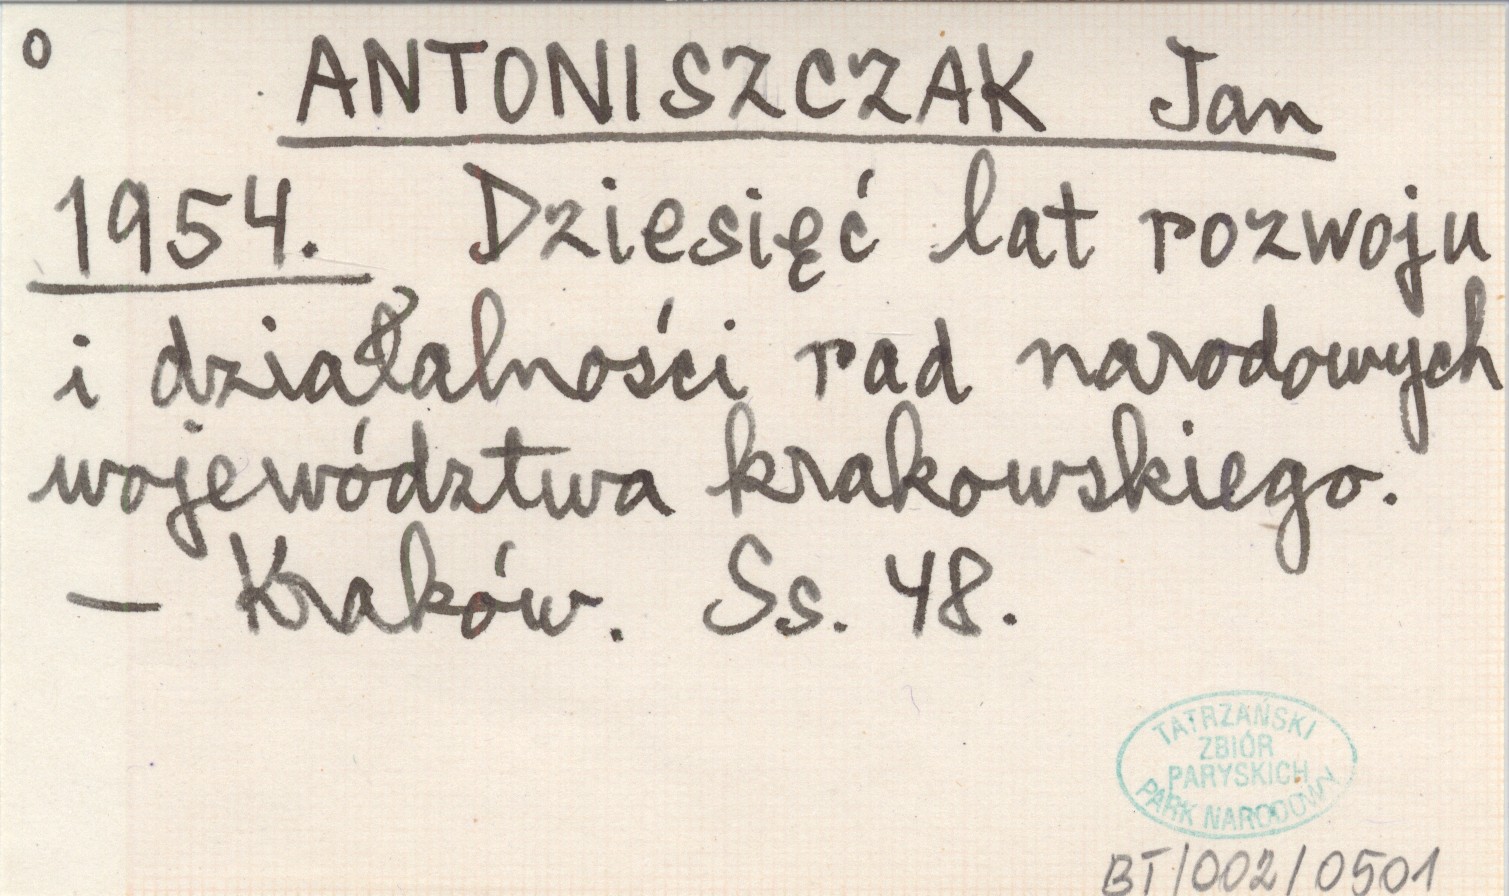 o
ANTONISZCZAK Jan
1954. Dziesięć lat rozwoju
i działalności rad narodowych
województwa krakowskiego.
— Kraków. Ss. 48.
TATRZAŃSKI
ZBIÓR
PARYSKICH
PARK NARODOWY
BT/002/0501